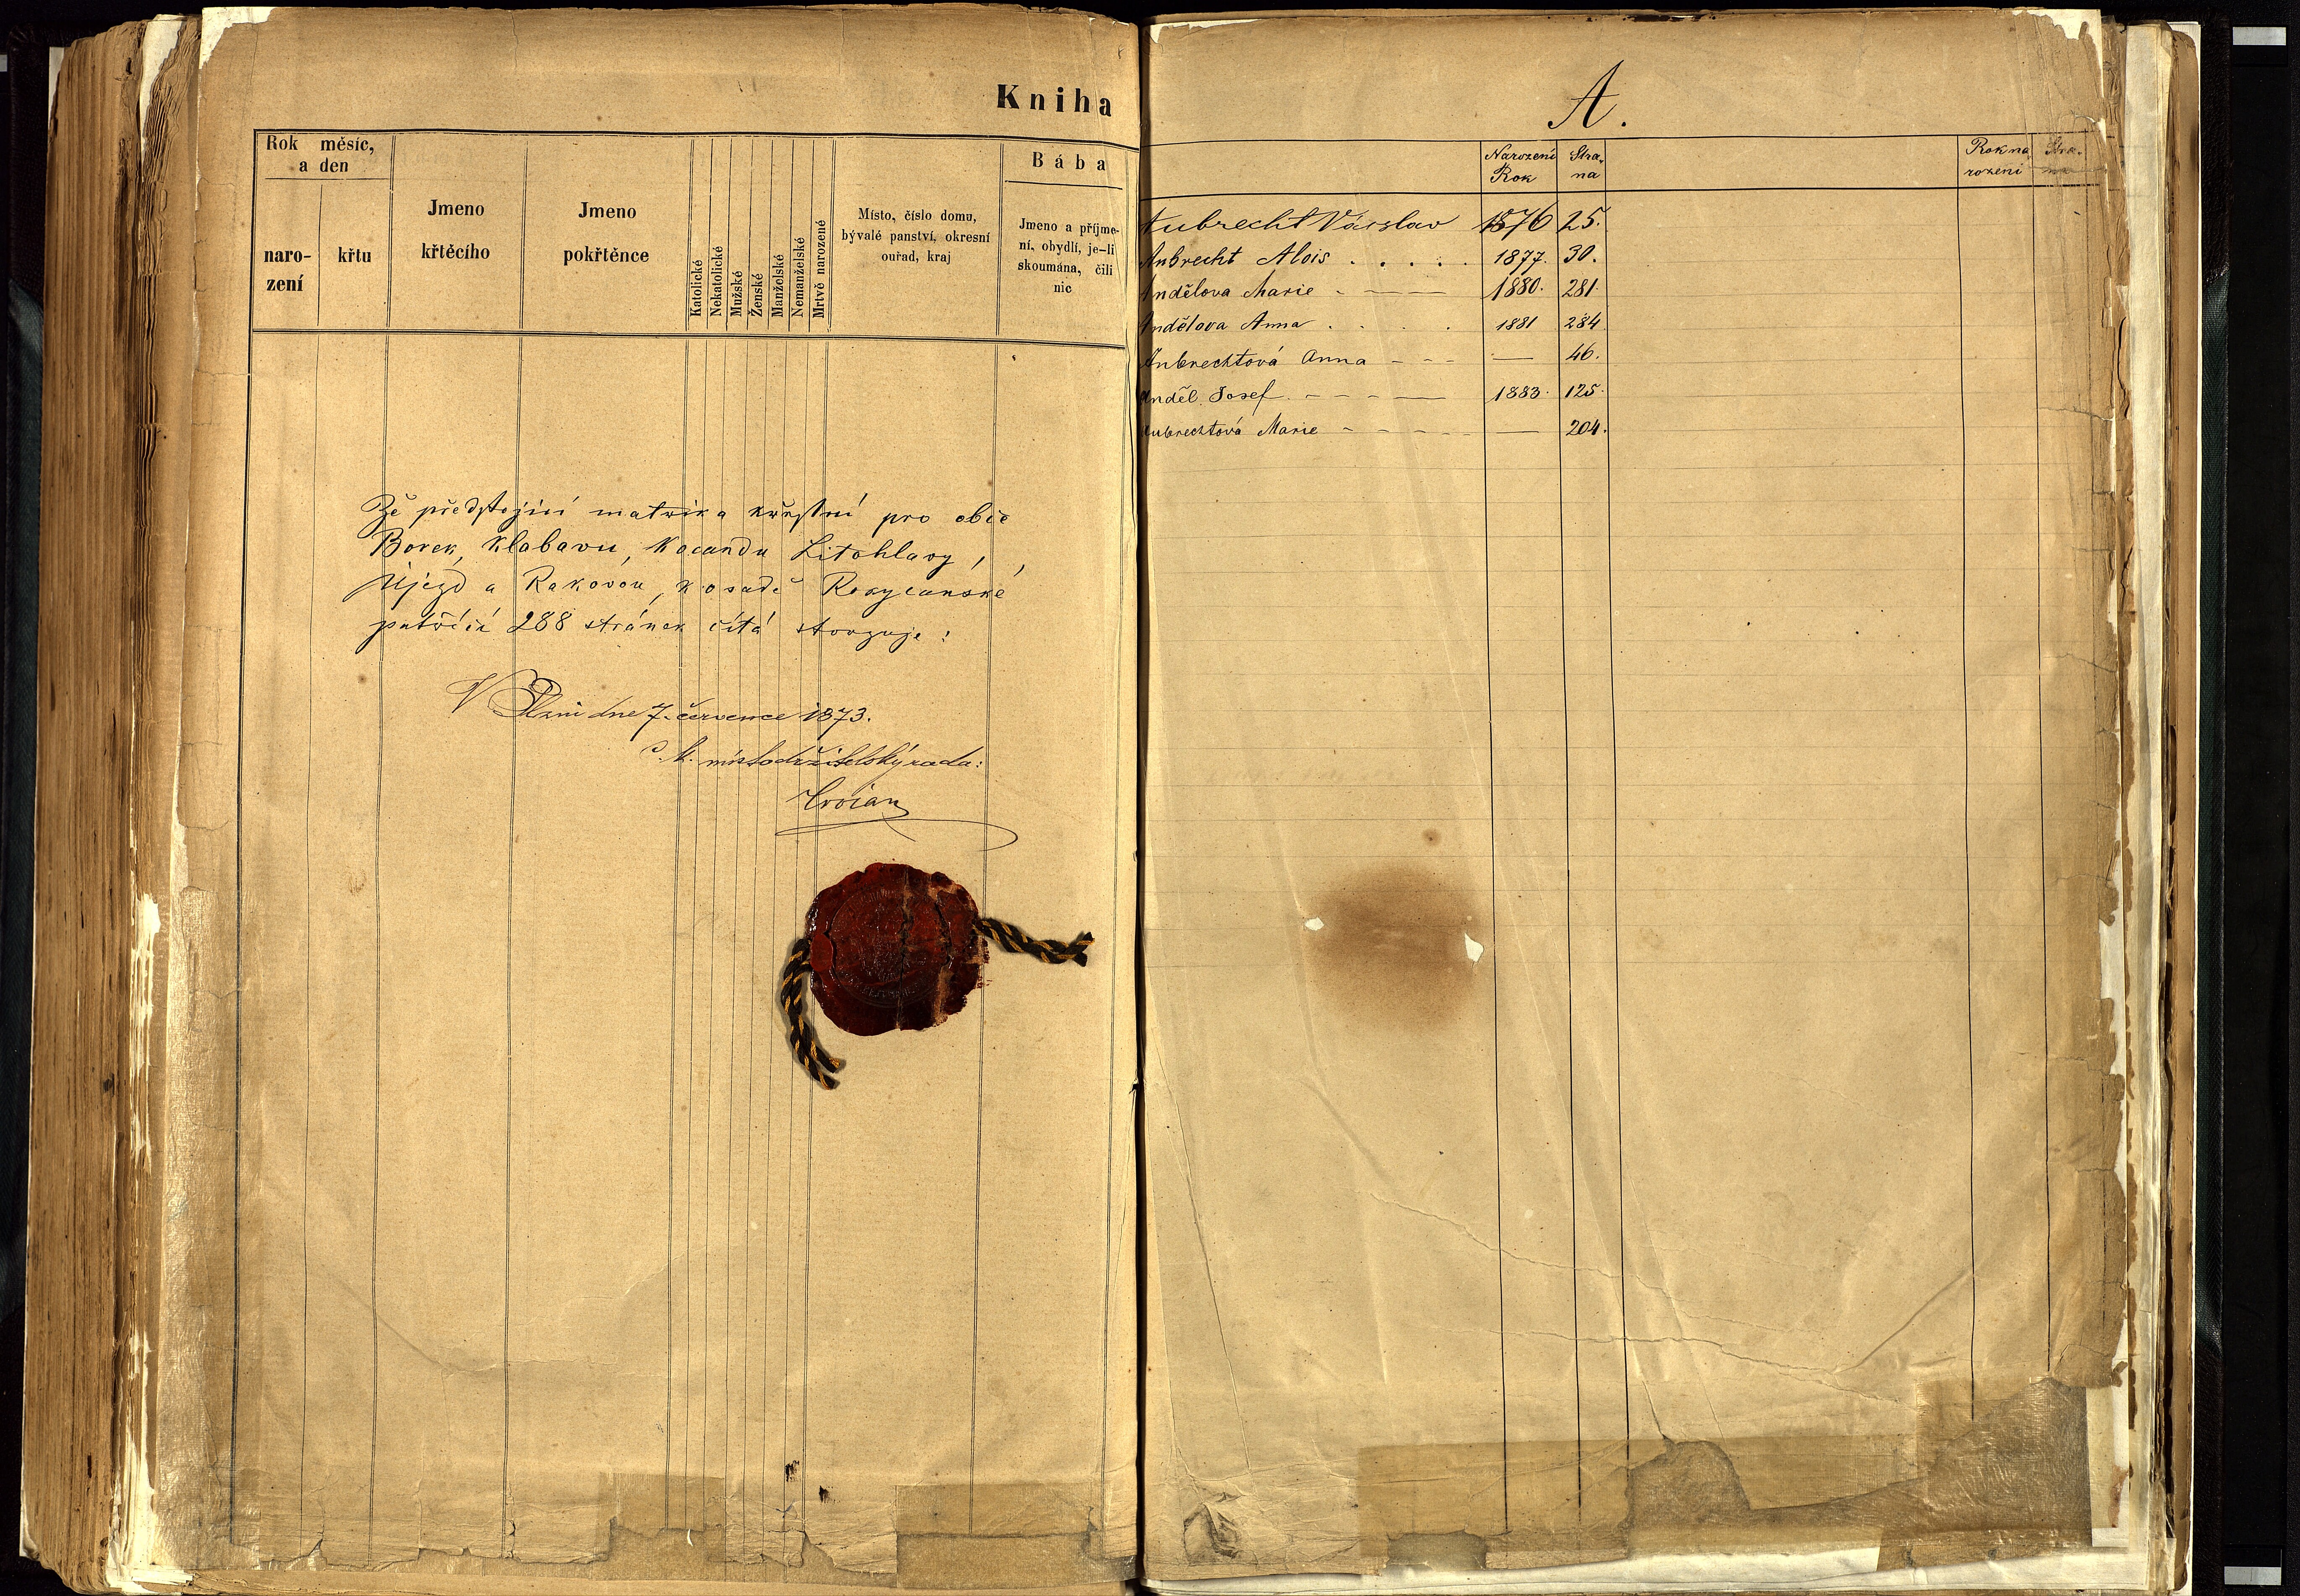 Kniha
Rok měsíc,
a den
naro-
zení
křtu
Jmeno
křtěcího
Jmeno
pokřtěnce
Katolické
Nekatolické
Mužské
Ženské
Manželské
Nemanželské
Mrtvě narozené
Místo, číslo domu,
bývalé panství, okresní
ouřad, kraj
Bába
Jmeno a příjme-
ní, obydlí, je-li
skoumána, čili
nic
Že předstojící matrika křestní pro obce
Borek, Klabavu, Kocandu Litohlavy,
Újezd a Rakovou, k osadě Rokycanské
patřící 288 stránek čítá stvrzuje:
V Plzni dne 7. července 1873.
C. k. místodržitelský rada:
Trojan
A.
Narození Rok Stra-na Rok na rození Stra-na
Aubrecht Václav 1876 25.
Aubrecht Alois . . . . . 1877. 30.
Andělova Marie - — — 1880. 281.
Andělova Anna . . . . 1881 284
Aubrechtová Anna - - - — 46.
Anděl Josef. - - - - — 1883. 125.
Aubrechtová Marie - - - - - — 204.